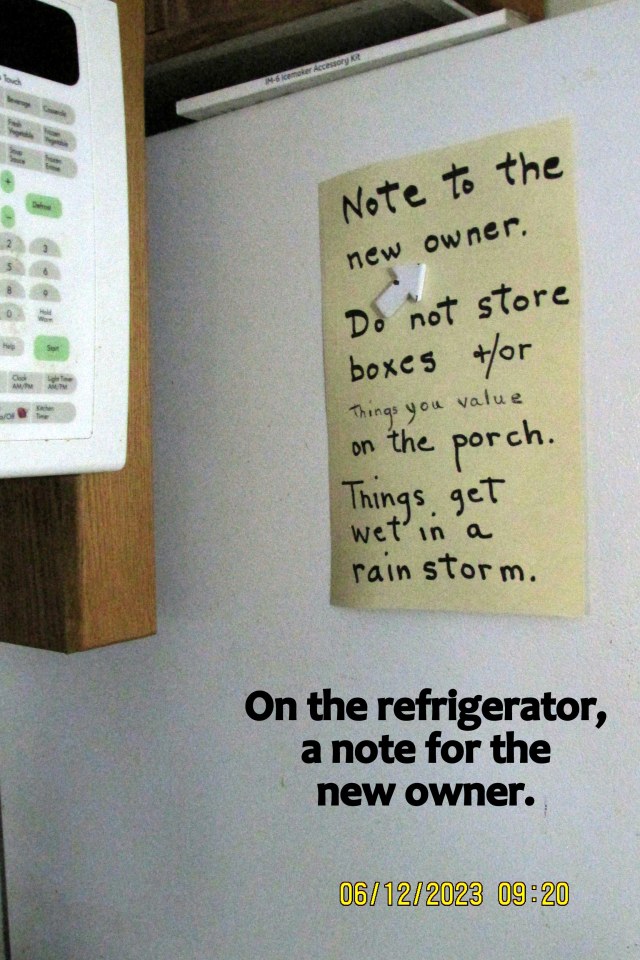 Touch
Beverage
Casserole
Fresh Vegetable
Frozen Vegetable
Frozen Entree
+
Defrost
-
2 3
5 6
8 9
0
Hold Warm
Help
Start
Clock AM/PM
Light Timer AM/PM
Kitchen Timer
IM-6 Icemaker Accessory Kit
Note to the
new owner.
Do not store
boxes +/or
Things you value
on the porch.
Things get
wet in a
rain storm.
On the refrigerator,
a note for the
new owner.
06/12/2023 09:20